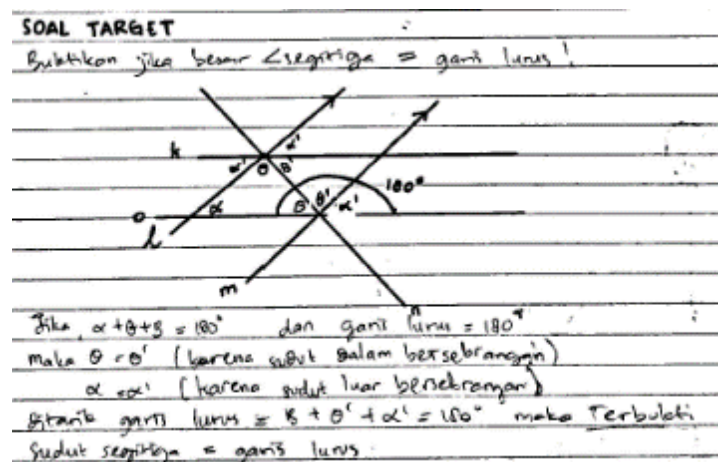 SOAL TARGET
Buktikan jika besar ∠segitiga = garis lurus!
k α' θ β' α'
o α β θ' α' 180°
l
m
n
Jika α+θ+β = 180° dan garis lurus = 180°
maka θ = θ' (karena sudut dalam bersebrangan)
α = α' (karena sudut luar bersebrangan)
ditarik garis lurus = β + θ' + α' = 180° maka Terbukti
Sudut segitiga = garis lurus.